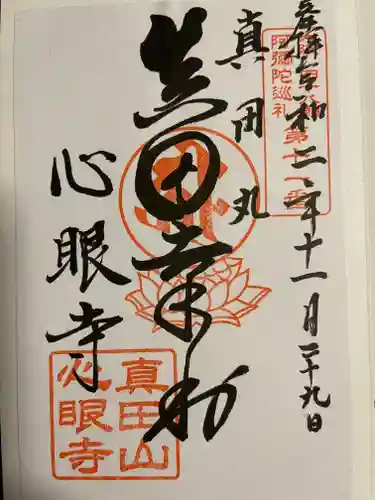 奉拝 令和二年十一月二十九日
阿彌陀巡礼
第十一番
真田丸
真田幸村
心眼寺
真田山
心眼寺